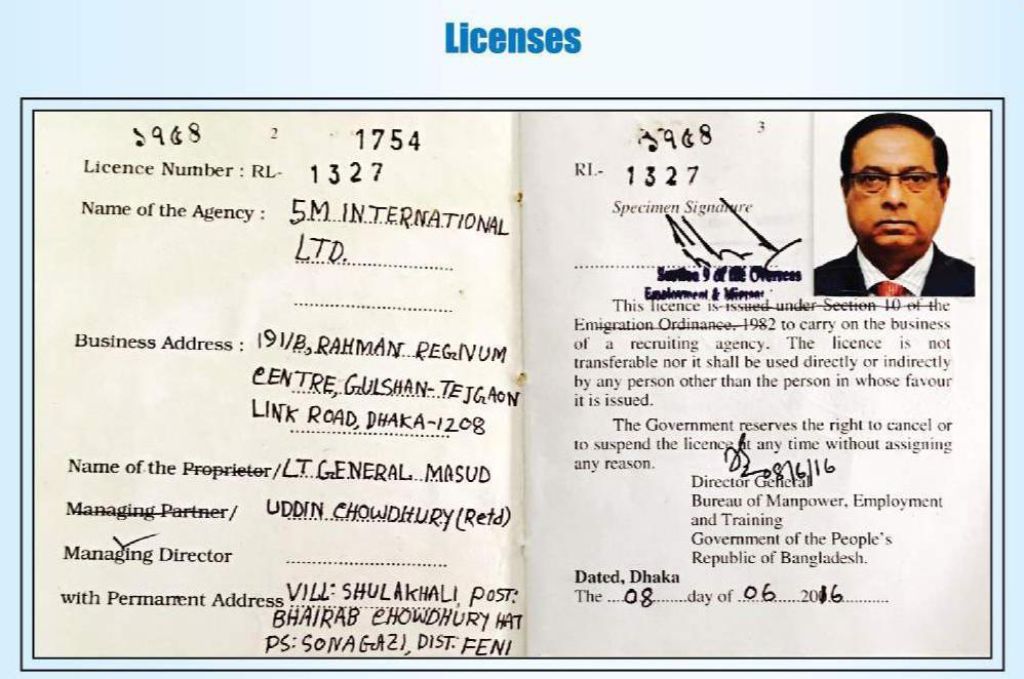 Licenses
১৭৫৪
2
1754
Licence Number : RL- 1327
Name of the Agency : 5M INTERNATIONAL
LTD.
Business Address : 191/B, RAHMAN REGNUM
CENTRE, GULSHAN-TEJGAON
LINK ROAD, DHAKA-1208
Name of the Proprietor/ LT. GENERAL MASUD
Managing Partner/ UDDIN CHOWDHURY (Retd)
Managing Director
with Permanent Address VILL: SHULAKHALI, POST:
BHAIRAB CHOWDHURY HAT
PS: SONAGAZI, DIST: FENI
১৭৫৪
3
RL- 1327
Specimen Signature
Section 9 of the Overseas
Employment &
This licence is issued under Section 10 of the
Emigration Ordinance. 1982 to carry on the business
of a recruiting agency. The licence is not
transferable nor it shall be used directly or indirectly
by any person other than the person in whose favour
it is issued.
The Government reserves the right to cancel or
to suspend the licence at any time without assigning
any reason.
08/6/16
Director General
Bureau of Manpower, Employment
and Training
Government of the People's
Republic of Bangladesh.
Dated, Dhaka
The ....08........day of ..06.....2016............